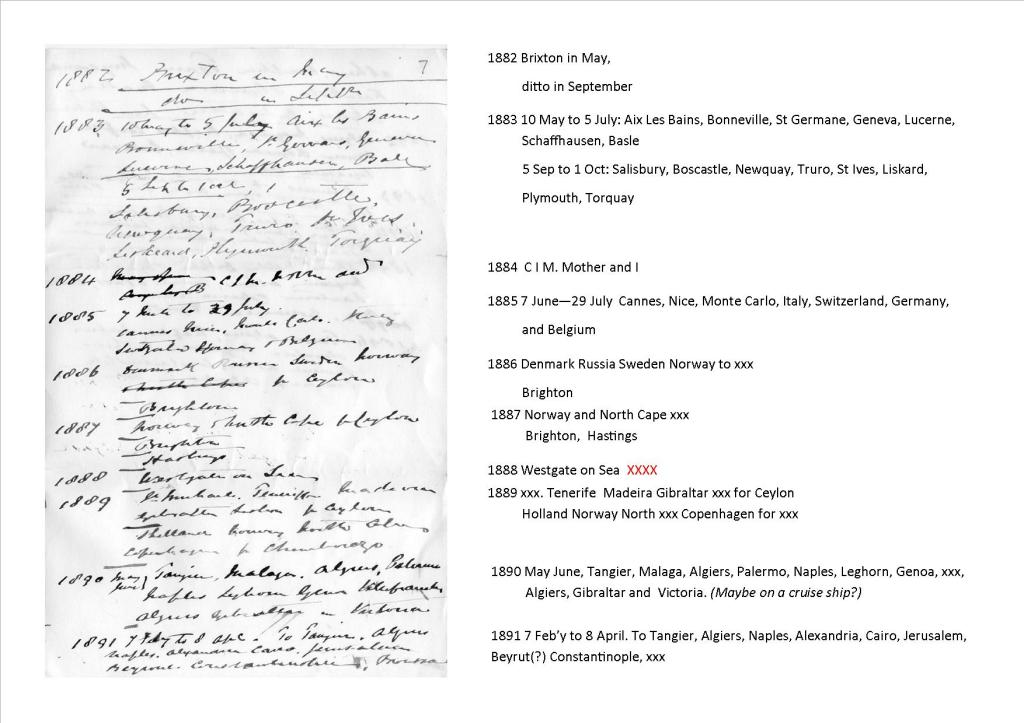 1882 Brixton in May 7
do in Septr
1883 10 May to 5 July Aix les Bains
Bonneville, St Gervais, Geneva
Lucerne, Schaffhausen, Bale
5 Sep to 1 Oct,
Salisbury, Boscastle,
Newquay, Truro, St Ives,
Liskeard, Plymouth Torquay
1884 C I M. Mother and I
1885 7 June to 29 July.
Cannes Nice, Monte Carlo. Italy
Switzerld Germany & Belgium
1886 Denmark Russia Sweden Norway
p Ceylon
Brighton
1887 Norway & North Cape p Ceylon
Brighton
Hastings
1888 Westgate on Sea
1889 St Michael. Teneriffe Madeira
Gibraltar Lisbon p Ceylon
Holland Norway North
Copenhagen p Chimborazo
1890 May June Tangier, Malaga. Algiers, Palermo
Naples Leghorn Genoa Villefranche
Algiers Gibraltar in Victoria
1891 7 Feby to 8 Apl. To Tangier, Algiers
Naples. Alexandria Cairo. Jerusalem
Beyrout. Constantinople, Broussa
1882 Brixton in May,
ditto in September
1883 10 May to 5 July: Aix Les Bains, Bonneville, St Germane, Geneva, Lucerne,
Schaffhausen, Basle
5 Sep to 1 Oct: Salisbury, Boscastle, Newquay, Truro, St Ives, Liskard,
Plymouth, Torquay
1884 C I M. Mother and I
1885 7 June—29 July Cannes, Nice, Monte Carlo, Italy, Switzerland, Germany,
and Belgium
1886 Denmark Russia Sweden Norway to xxx
Brighton
1887 Norway and North Cape xxx
Brighton, Hastings
1888 Westgate on Sea XXXX
1889 xxx. Tenerife Madeira Gibraltar xxx for Ceylon
Holland Norway North xxx Copenhagen for xxx
1890 May June, Tangier, Malaga, Algiers, Palermo, Naples, Leghorn, Genoa, xxx,
Algiers, Gibraltar and Victoria. (Maybe on a cruise ship?)
1891 7 Feb'y to 8 April. To Tangier, Algiers, Naples, Alexandria, Cairo, Jerusalem,
Beyrut(?) Constantinople, xxx